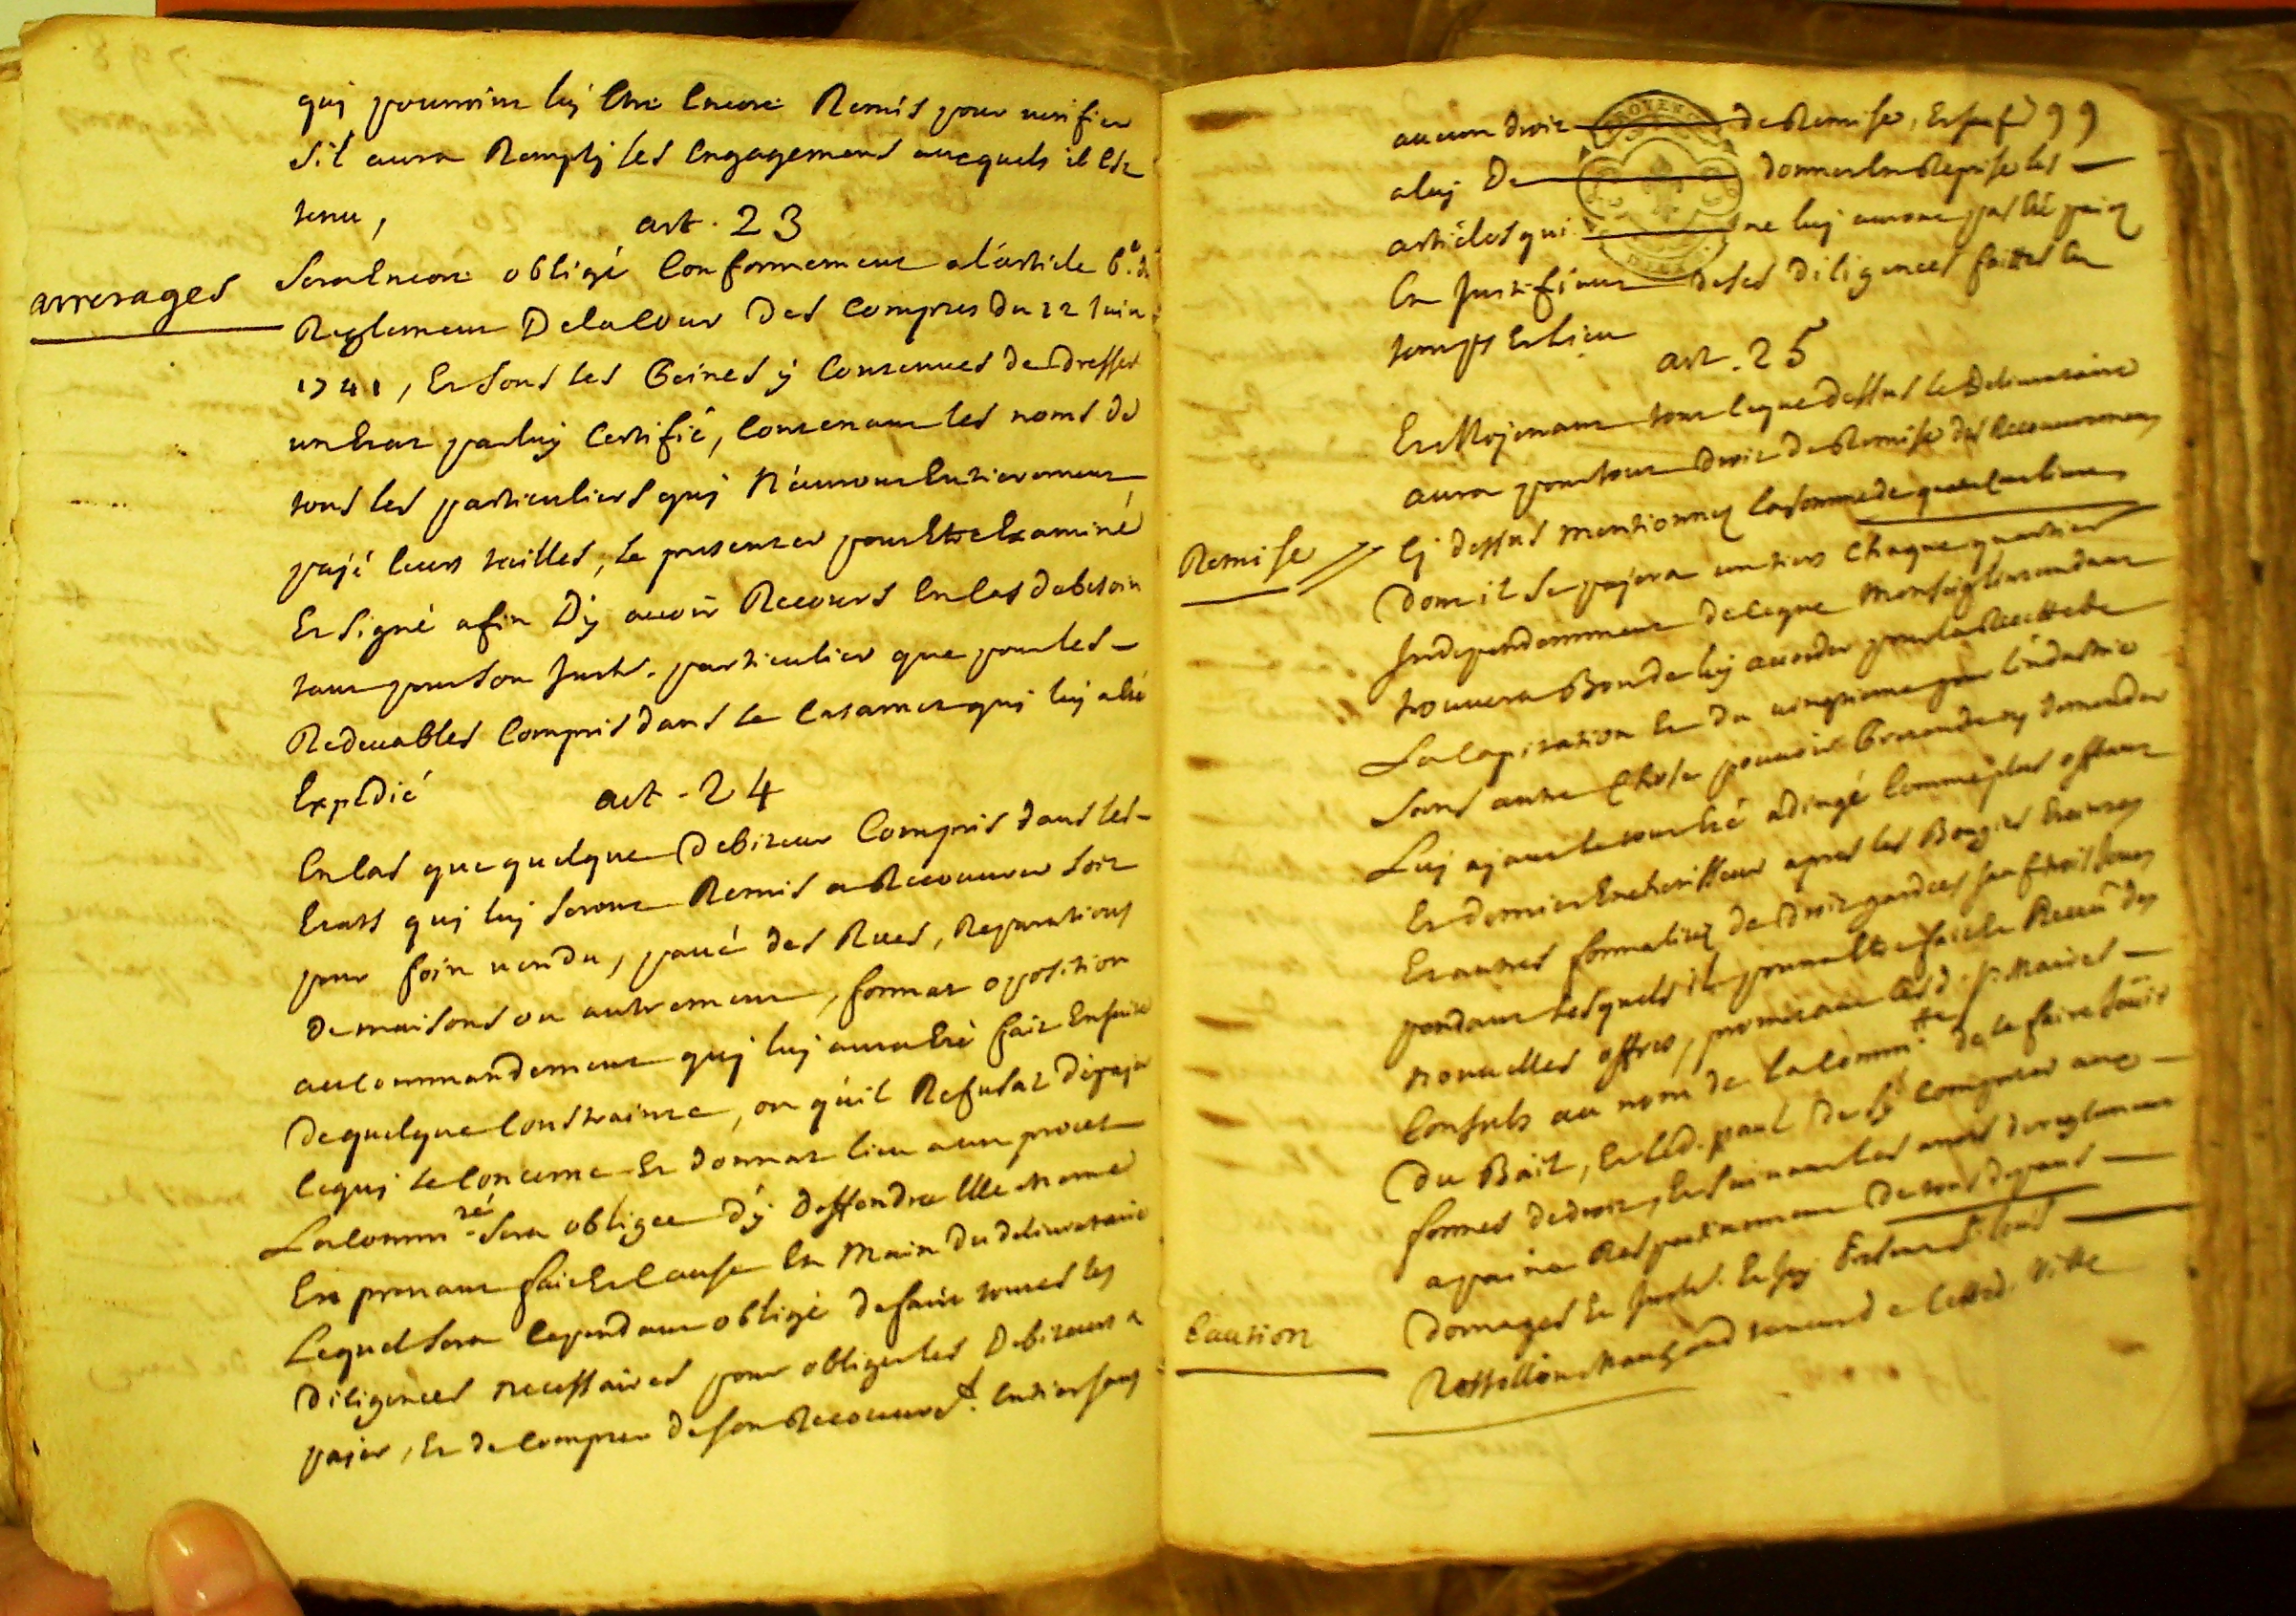 quj pourroint luj Etre Encore Remis pour verifier
Sil aura Remplj les Engagemens auxquels il Est
tenu,
art. 23
arrerages
Sera Encore obligé Conformement a l'article 6.e du
Reglement De la Cour Des Comptes Du 22 Juin
1741, Et Sous les Peines ÿ Contenues de Dresser
un Etat par luj Certifié, Contenant les noms de
tous les particuliers quj N'auront Entierement
paÿé leurs tailles, le presenter pour Etre Examiné
Et Signé afin D'ÿ avoir Recours En Cas de besoin
tant pour Son Jnter. particulier que pour les
Redevables Compris dans le Casarnet quj luj a été
Expedié
art. 24
En Cas que quelque Debiteur Compris dans les
Etats quj luj Seront Remis a Recouvrer Soit
pour foin vendu, pavé des Rues, Reparations
De maisons ou autrement, format opposition
au Commandement quj luj aura Eté fait Ensuite
De quelque Constrainte, ou qu'il Refusat de paÿer
Cequj le Concerne Et Donnat lieu a un procet
La Comm.té Sera obligee D'ÿ Deffendre Elle meme
En prenant fait Et Cause En Main Du deliverataire
Lequel Sera Cependant obligé de faire toutes les
Diligences necessaires pour obliger les Debiteurs a
paÿer, Et de Compter de Son Recouvre.t Entier Sans
99
aucun droit de Remise, Et Sauf
a luj De donner En Reprise les
articles qui ne luj auront pas Eté paÿez
En Justifiant de Ses Diligences faittes En
temps Et lieu
art. 25
Et Moÿenant tout Ce que dessus le Deliverataire
aura pour tout Droit de Remise des Recouvremens
Remise
Cj dessus Mentionnez la Somme de
Dont il Se paÿera un tiers Chaque quartier
Jndependamment de Ce que Monseig.r l'Intendant
trouvera Bon de luj accorder pour la Recette de
La Capitation Et Du vingtieme pour l'industrie
Sans autre Chose pouvoir Pretendre nj Demander
Luj aÿant le tout Eté adingé Comme plus offrant
Et Dernier Encherisseur apres les Bougies Eteintes
Et autres formalitez de Droit gardees Sauf trois Jours
pendant lesquels il pourra Etre fait Et Receu des
nouvelles offres, promettant Lesd. s.rs Maires
Consuls au nom de la Comm.tte de le faire Jouir
Du Bail, Et Led. paul De Sÿ Comporter aux
formes de droit, Et Suivant les arrets de reglement
a peine Respectivement De tous depans
Domages Et Jnter. Et Luj
Caution
Marchand de Cetted. Ville